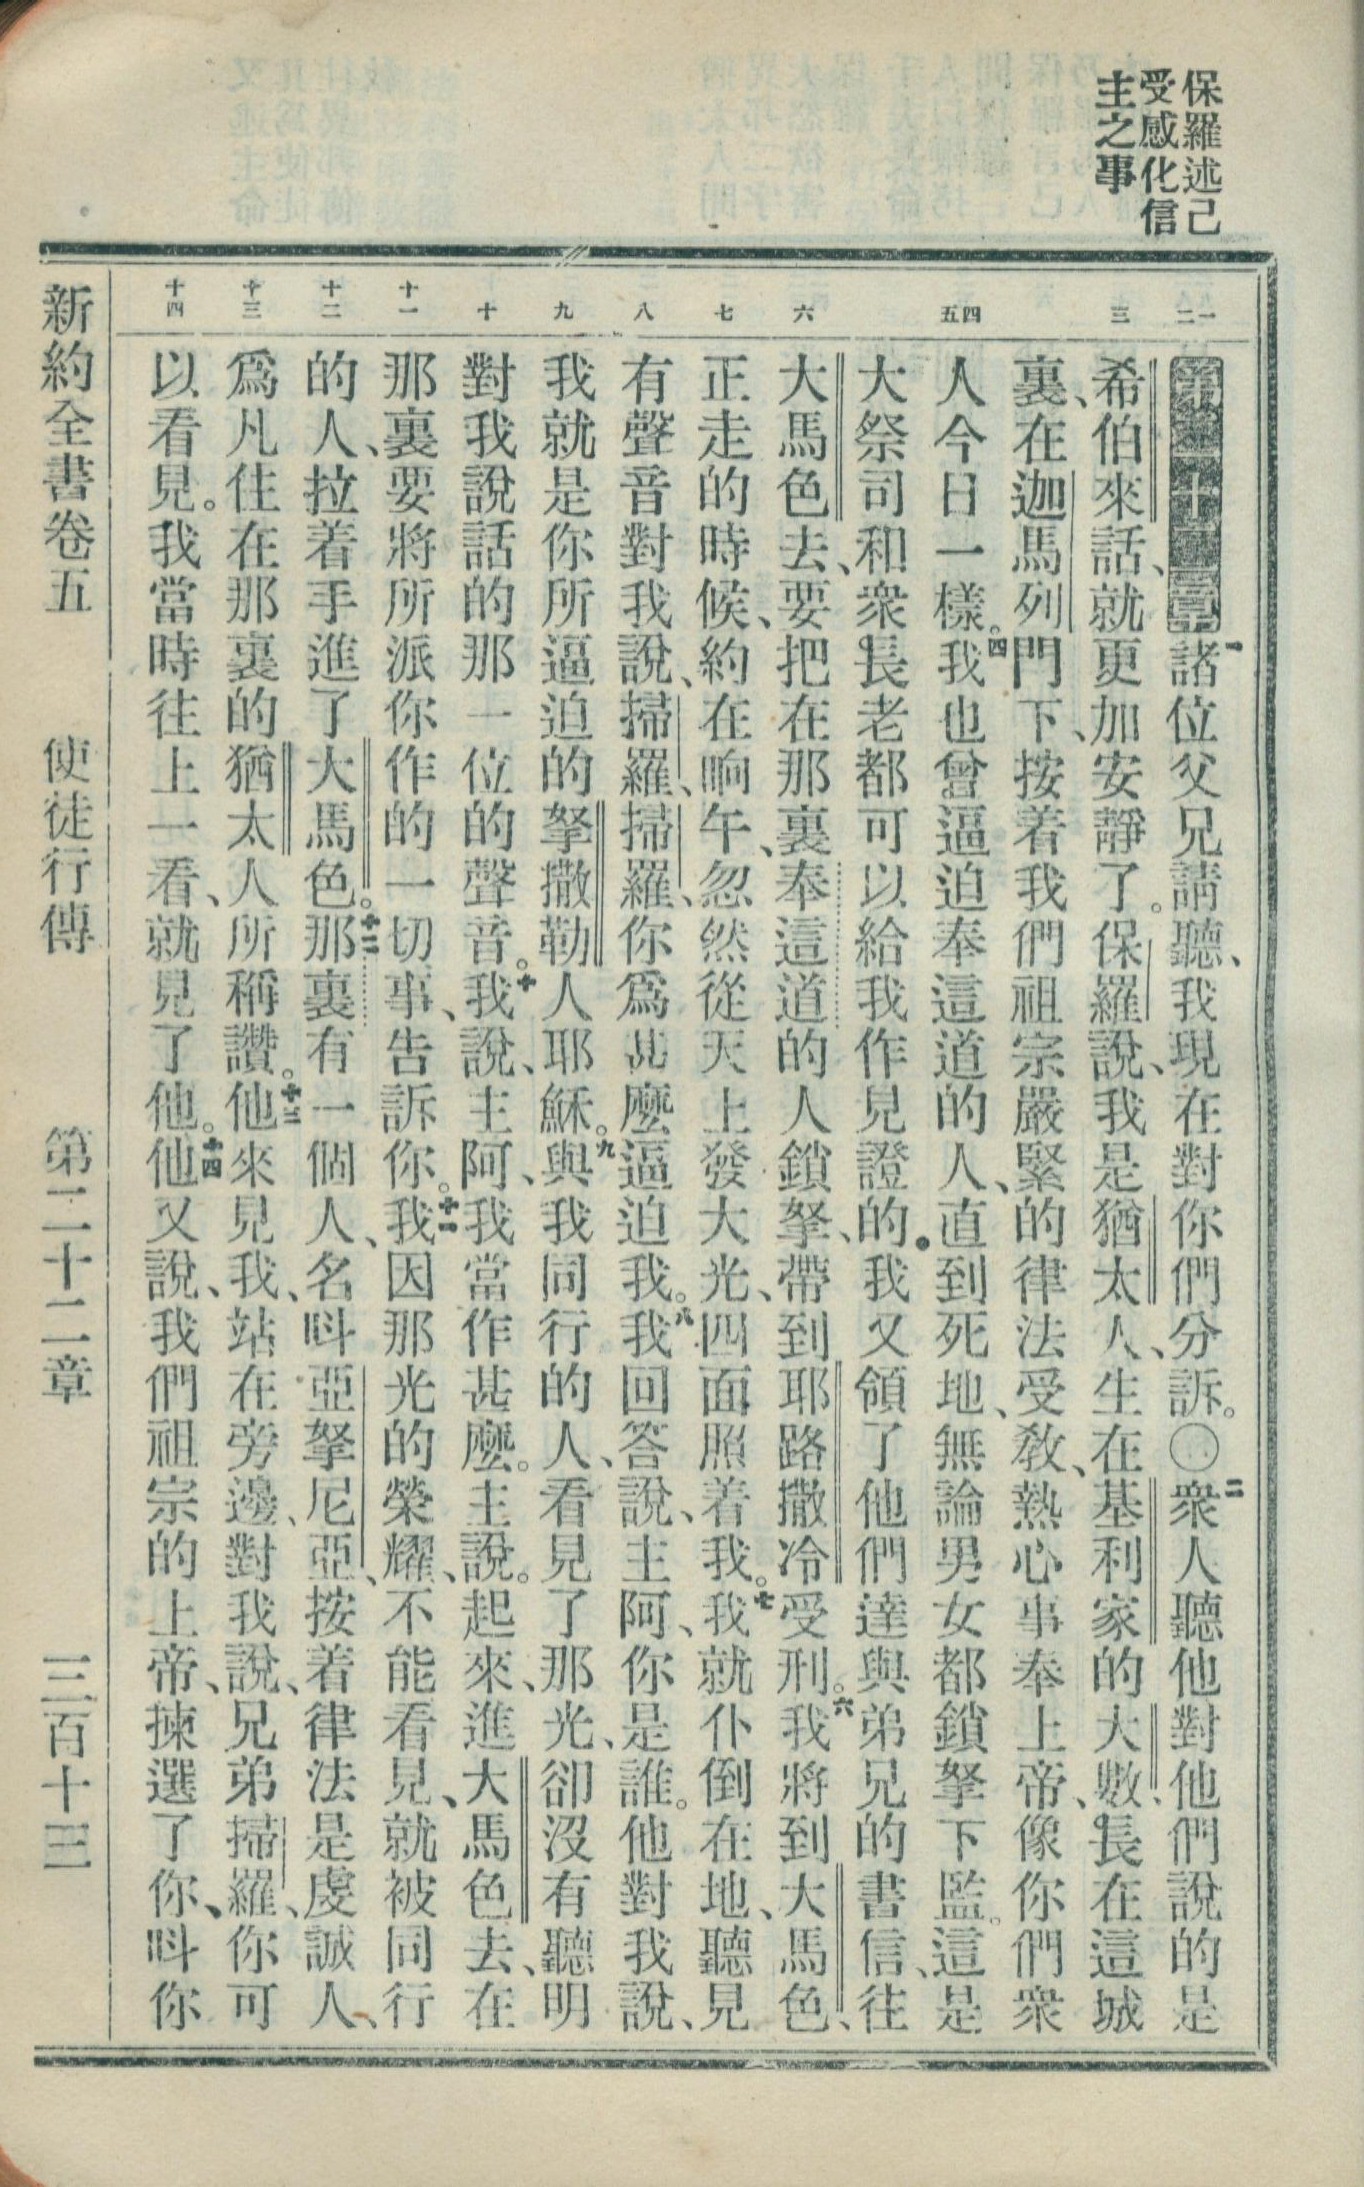 保羅述己
受感化信
主之事
一二
三
四五
六
七
八
九
十
十一
十二
十三
十四
第二十二章一諸位父兄請聽、我現在對你們分訴。〇二衆人聽他對他們說的是
希伯來話、就更加安靜了。保羅說、我是猶太人、生在基利家的大數、長在這城
裏、在迦馬列門下、按着我們祖宗嚴緊的律法受教、熱心事奉上帝、像你們衆
人今日一樣。四我也曾逼迫奉這道的人、直到死地、無論男女都鎖拏下監。這是
大祭司和衆長老都可以給我作見證的。我又領了他們達與弟兄的書信、往
大馬色去、要把在那裏奉這道的人鎖拏、帶到耶路撒冷受刑。六我將到大馬色、
正走的時候、約在晌午、忽然從天上發大光、四面照着我。七我就仆倒在地、聽見
有聲音對我說、掃羅、掃羅、你爲甚麼逼迫我。八我回答說、主阿、你是誰。他對我說、
我就是你所逼迫的拏撒勒人耶穌。九與我同行的人、看見了那光、卻沒有聽明
對我說話的那一位的聲音。十我說、主阿、我當作甚麼。主說。起來、進大馬色去、在
那裏要將所派你作的一切事、告訴你。十一我因那光的榮耀、不能看見、就被同行
的人、拉着手進了大馬色。十二那裏有一個人、名呌亞拏尼亞、按着律法是虔誠人、
爲凡住在那裏的猶太人所稱讚。十三他來見我、站在旁邊、對我說、兄弟掃羅、你可
以看見。我當時往上一看、就見了他。十四他又說、我們祖宗的上帝、揀選了你、呌你
新約全書卷五 使徒行傳 第二十二章 三百十三